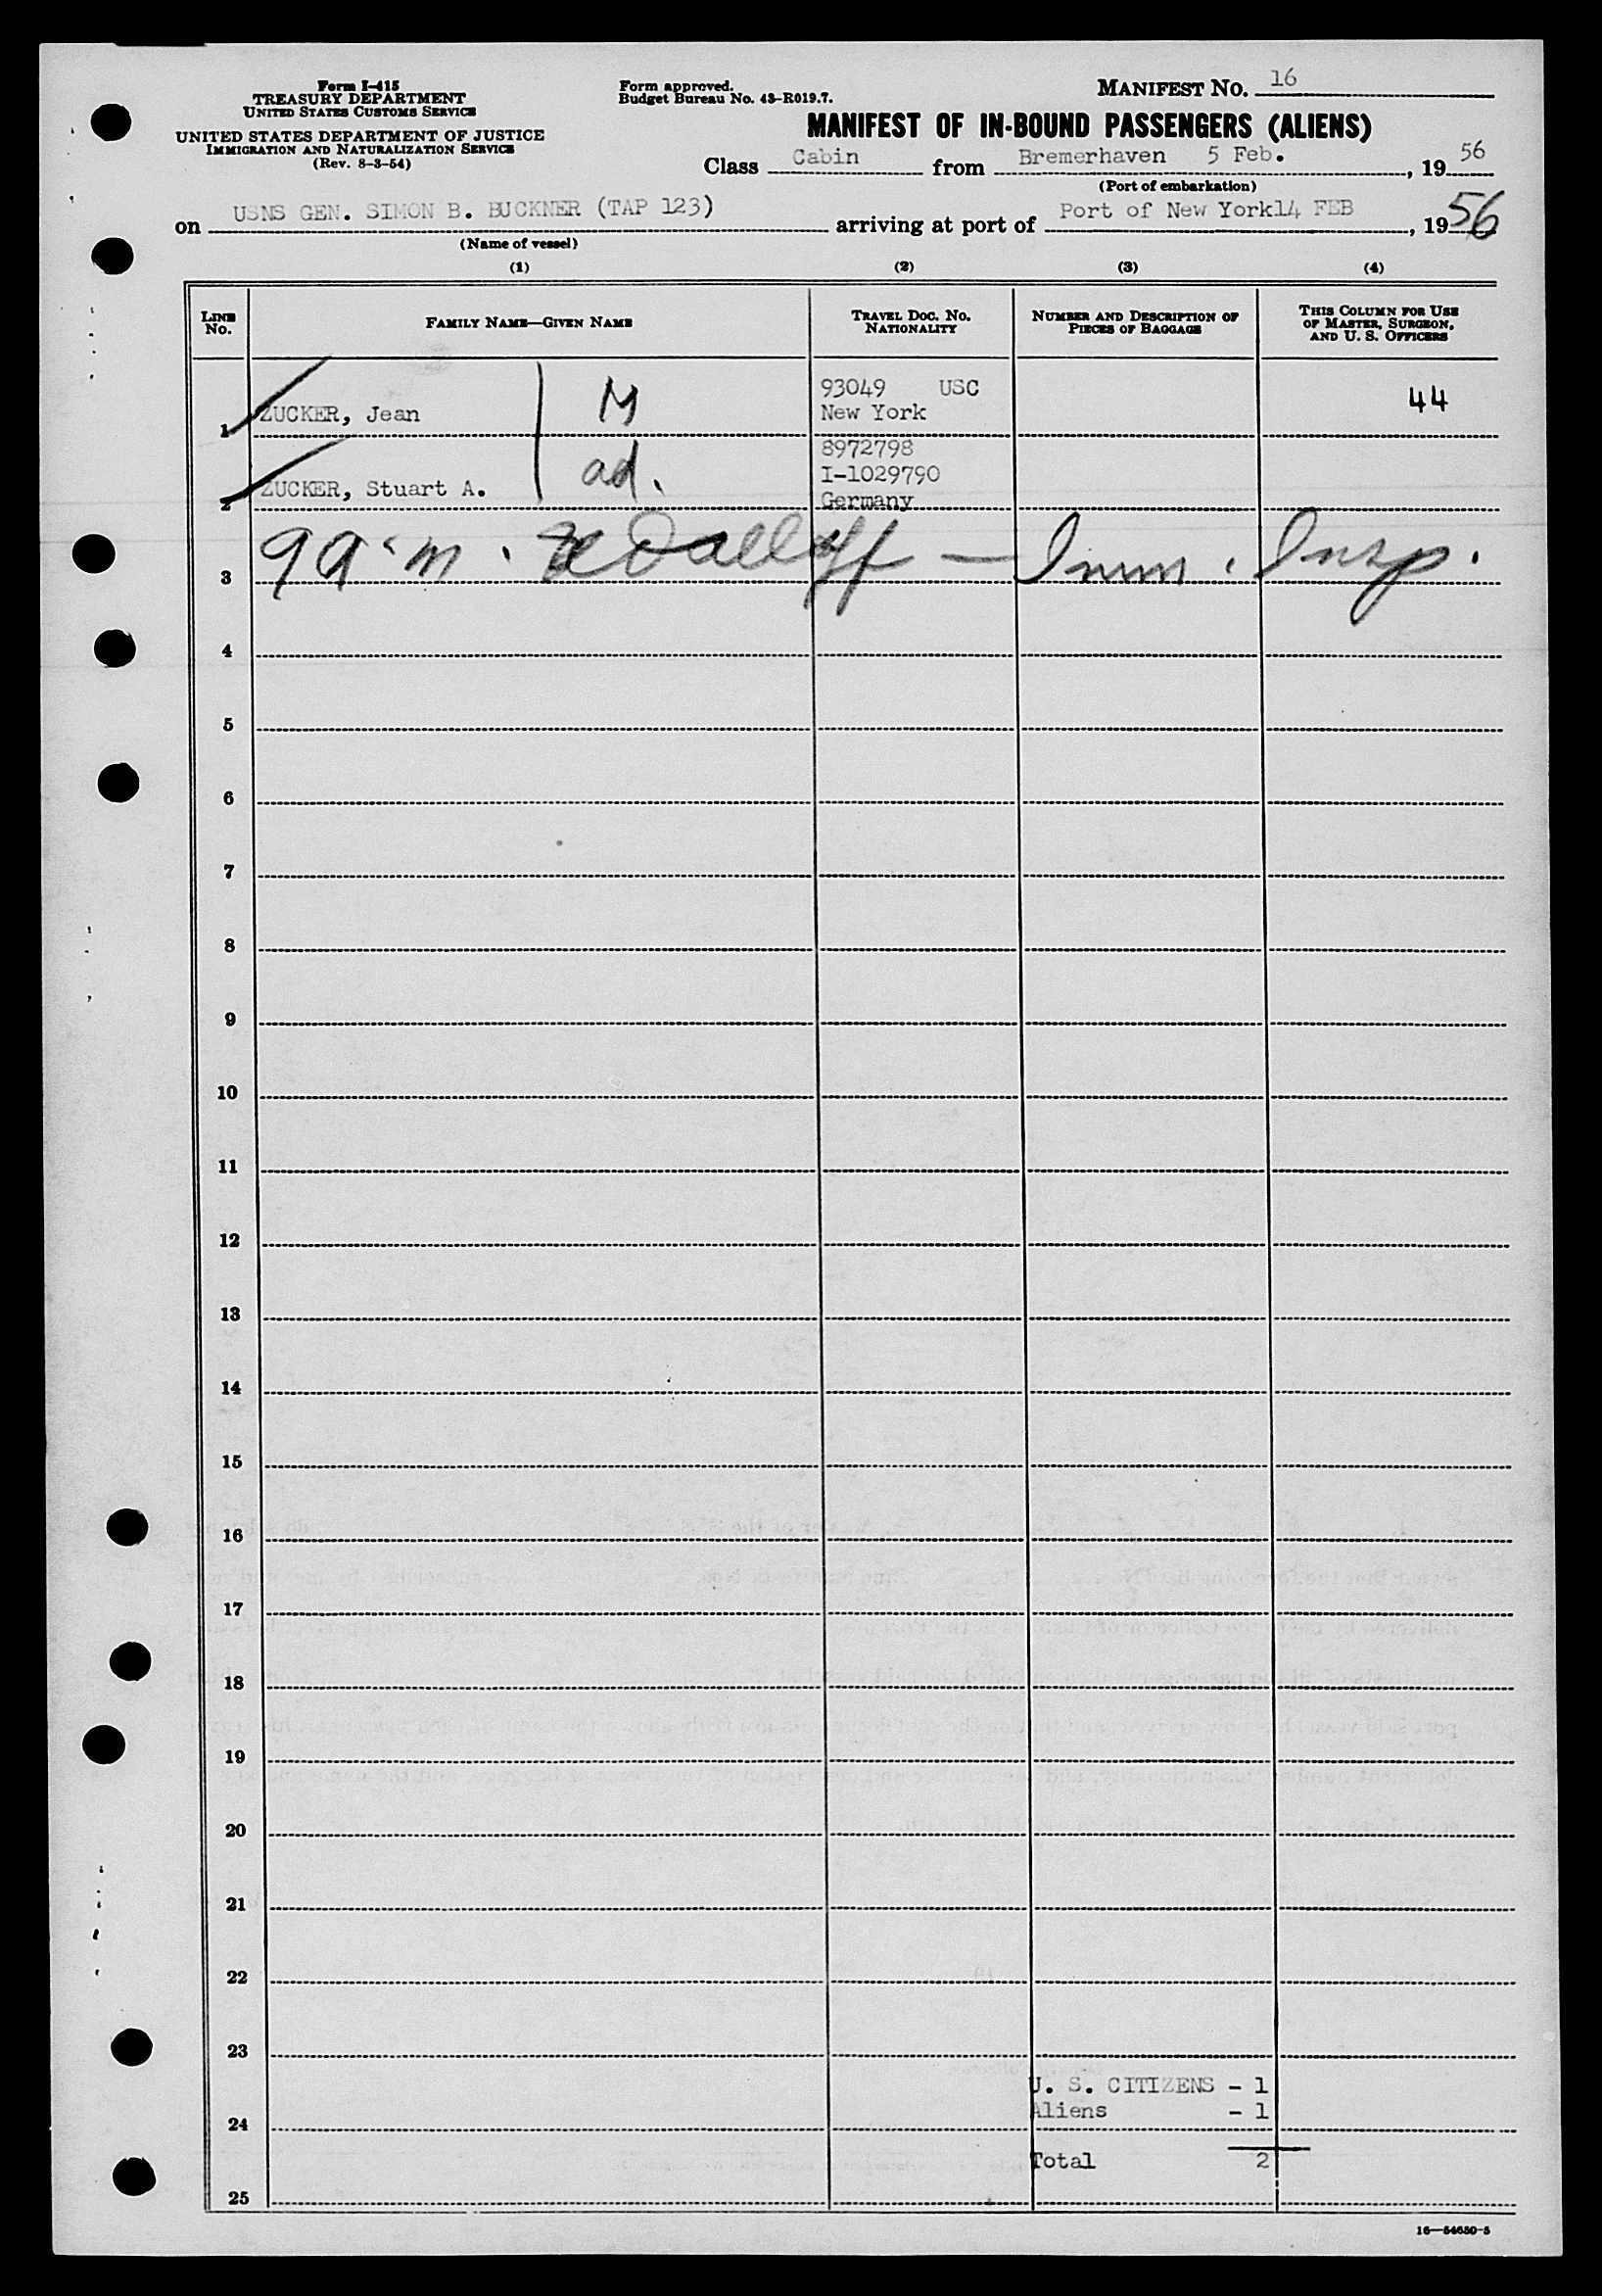 Form I-415
TREASURY DEPARTMENT
UNITED STATES CUSTOMS SERVICE
UNITED STATES DEPARTMENT OF JUSTICE
IMMIGRATION AND NATURALIZATION SERVICE
(Rev. 8-3-54)
Form approved.
Budget Bureau No. 43-R019.7.
MANIFEST NO. 16
MANIFEST OF IN-BOUND PASSENGERS (ALIENS)
Class Cabin from Bremerhaven 5 Feb., 1956
(Port of embarkation)
on USNS GEN. SIMON B. BUCKNER (TAP 123) arriving at port of Port of New York 14 FEB, 1956
(Name of vessel)
(1) (2) (3) (4)
LINE NO. FAMILY NAME—GIVEN NAME TRAVEL DOC. NO. NATIONALITY NUMBER AND DESCRIPTION OF PIECES OF BAGGAGE THIS COLUMN FOR USE OF MASTER, SURGEON, AND U. S. OFFICERS
1 ZUCKER, Jean M 93049 USC New York 44
2 ZUCKER, Stuart A. ad. 8972798 I-1029790 Germany
3 — Imm. Insp.
4
5
6
7
8
9
10
11
12
13
14
15
16
17
18
19
20
21
22
23
U. S. CITIZENS - 1
24 Aliens - 1
Total 2
25
16—54650-5